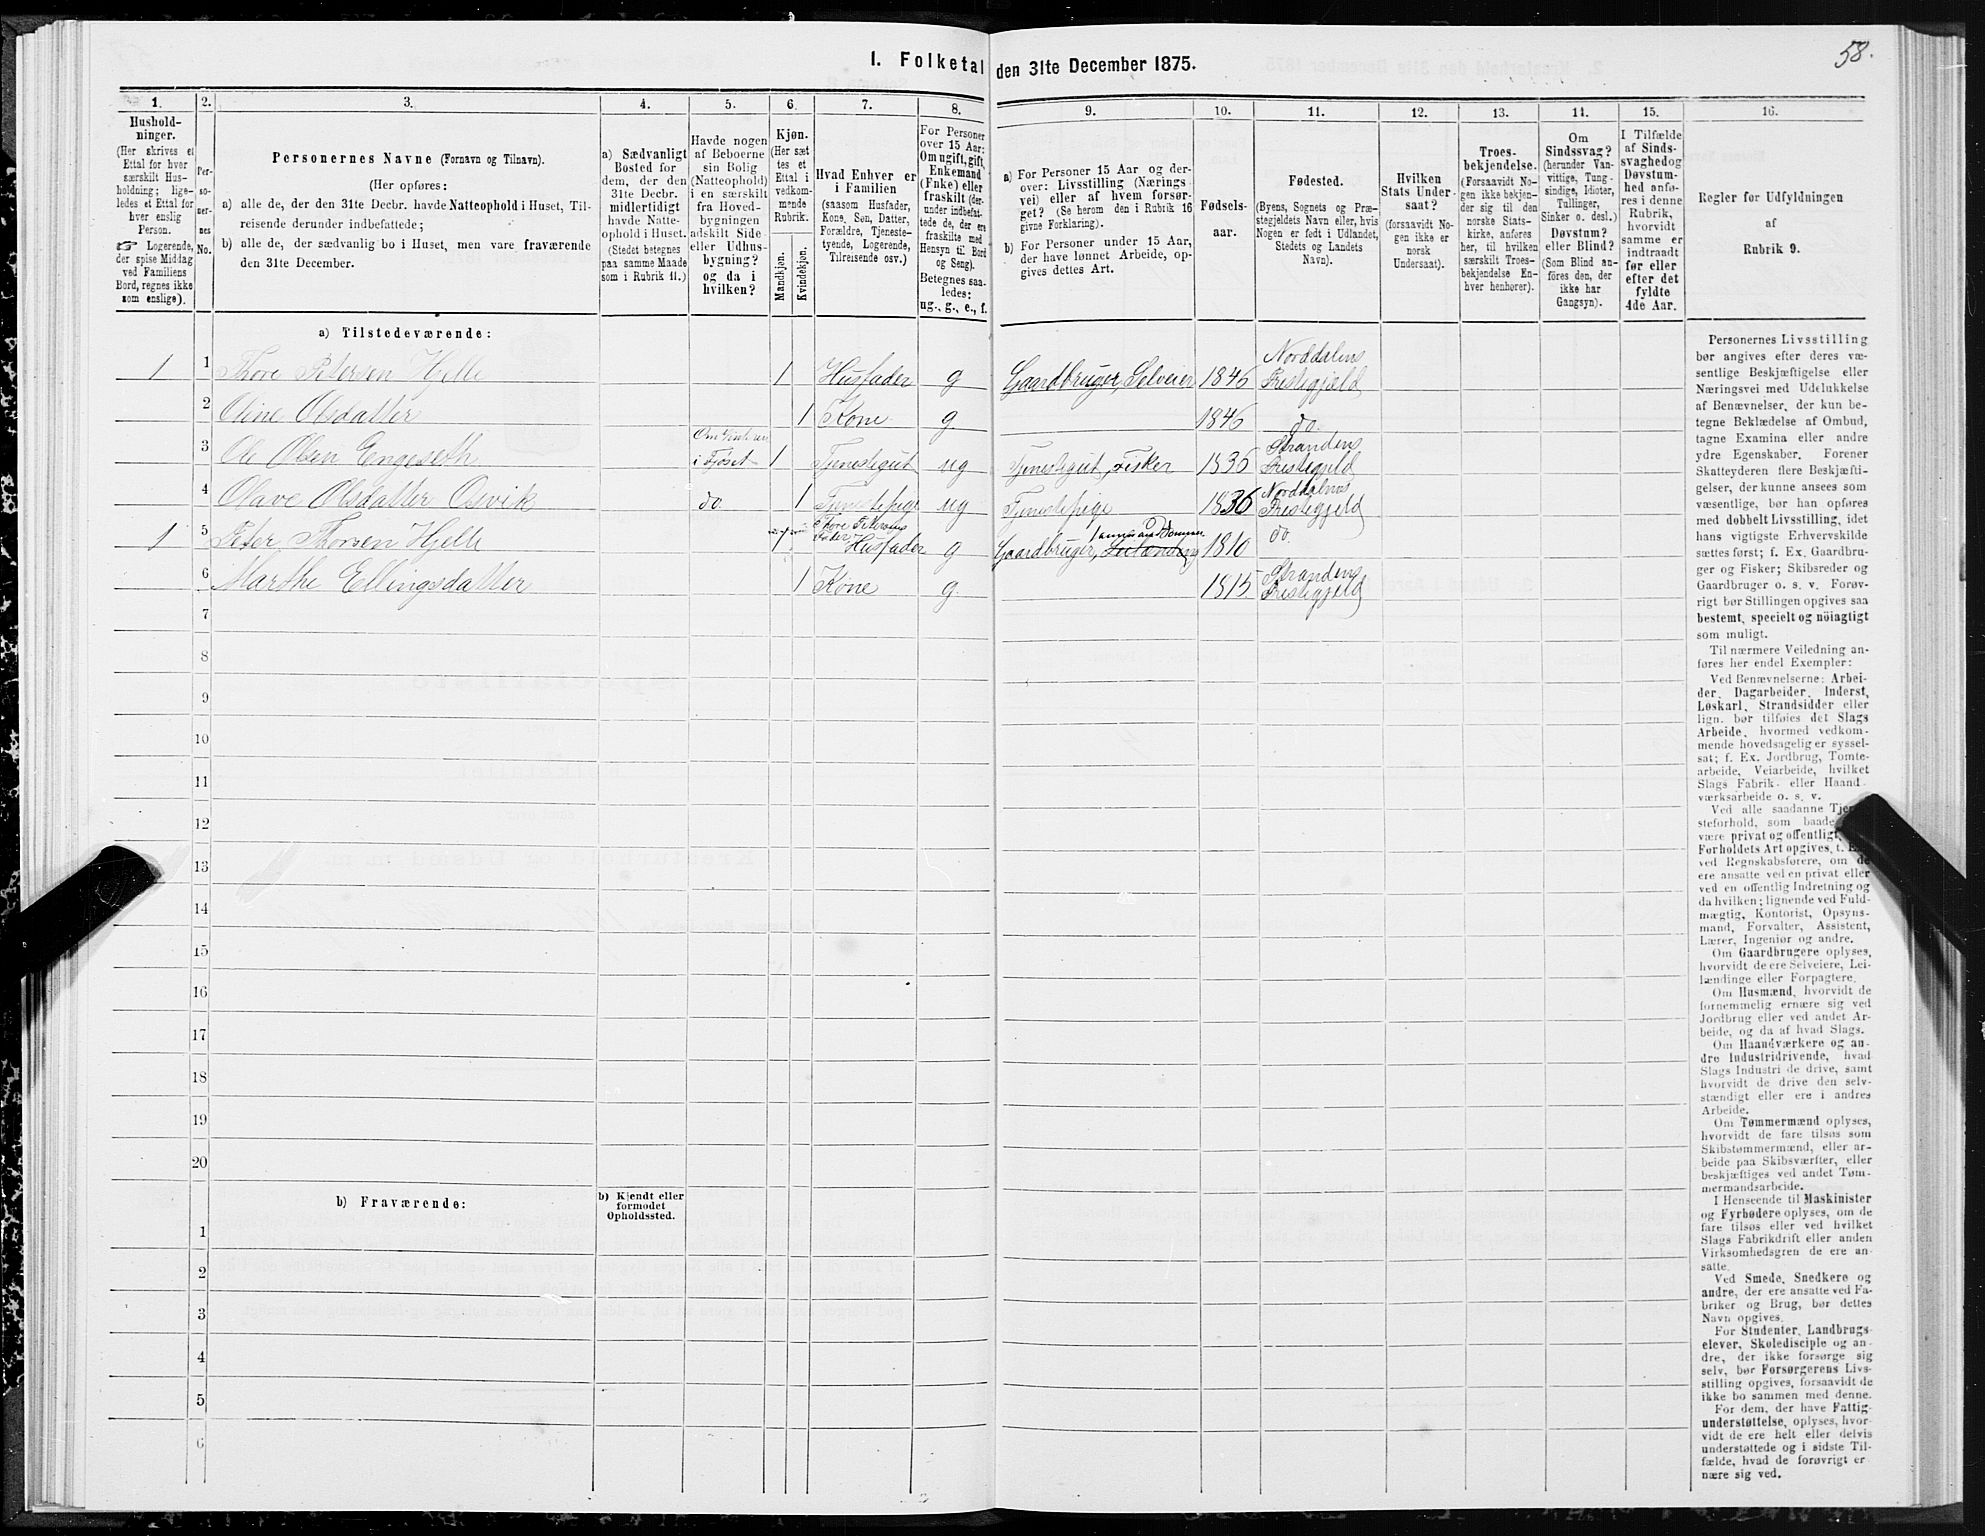 58.
1. Folketal den 31te December 1875.
1. 2. 3. 4. 5. 6. 7. 8. 9. 10. 11. 12. 13. 14. 15. 16.
Hushold-
ninger.
(Her skrives et
Ettal for hver
særskilt Hus-
holdning; lige-
ledes et Ettal for
hver enslig
Person.
☞ Logerende,
der spise Middag
ved Familiens
Bord, regnes ikke
som enslige).
Per-
so-
ner-
nes
No.
Personernes Navne (Fornavn og Tilnavn).
(Her opføres:
a) alle de, der den 31te Decbr. havde Natteophold i Huset, Til-
reisende derunder indbefattede;
b) alle de, der sædvanlig bo i Huset, men vare fraværende
den 31te December.
a) Sædvanligt
Bosted for
dem, der den
31te Decbr.
midlertidigt
havde Natte-
ophold i Huset.
(Stedet betegnes
paa samme Maade
som i Rubrik 11.)
Havde nogen
af Beboerne
sin Bolig
(Natteophold)
i en særskilt
fra Hoved-
bygningen
adskilt Side-
eller Udhus-
bygning?
og da i
hvilken?
Kjøn.
(Her sæt
tes et
Ettal i
vedkom-
mende
Rubrik.
Mandkjøn.
Kvindekjøn.
Hvad Enhver er
i Familien
(saasom Husfader,
Kone, Søn, Datter,
Forældre, Tjeneste-
tyende, Logerende,
Tilreisende osv.)
For Personer
over 15 Aar:
Om ugift, gift,
Enkemand
(Enke) eller
fraskilt (der-
under indbefat-
tede de, der ere
fraskilte med
Hensyn til Bord
og Seng).
Betegnes saa-
ledes:
ug., g., e., f.
a) For Personer 15 Aar og der-
over: Livsstilling (Nærings
vei) eller af hvem forsør-
get? (Se herom den i Rubrik 16
givne Forklaring).
b) For Personer under 15 Aar,
der have lønnet Arbeide, op-
gives dettes Art.
Fødsels-
aar.
Fødested.
(Byens, Sognets og Præ-
stegjeldets Navn eller, hvis
Nogen er født i Udlandet,
Stedets og Landets
Navn).
Hvilken
Stats Under-
saat?
(forsaavidt No-
gen ikke er
norsk
Undersaat).
Troes-
bekjendelse.
(Forsaavidt No-
gen ikke bekjen-
der sig til den
norske Stats-
kirke, anføres
her, til hvilken
særskilt Troes-
bekjendelse En-
hver henhører).
Om
Sindssvag?
(herunder Van-
vittige, Tung-
sindige, Idioter,
Tullinger,
Sinker o. desl.)
Døvstum?
eller Blind?
(Som Blind an-
føres den, der
ikke har
Gangsyn).
I Tilfælde
af Sinds-
svaghed og
Døvstum-
hed anfø-
res i denne
Rubrik,
hvorvidt
samme er
indtraadt
før eller
efter det
fyldte
4de Aar.
Regler for Udfyldningen
af
Rubrik 9.
a) Tilstedeværende:
1 1 Thore Petersen Hjelle 1 Husfader g Gaardbruger, Selveier 1846 Norddalens Prestegjæld
2 Oline Olsdatter 1 Kone g 1846 do.
3 Ole Olsen Engeseth Om Vinteren i Fjøset 1 Tjenestegut ug Tjenestegut, Fisker 1836 Strandens Prestegjeld
4 Olave Olsdatter Osvik do. 1 Tjenestepige ug Tjenestepige 1836 Norddalens Prestegjeld
1 5 Peter Thorsen Hjelle 1 Thore Petersens Fader Husfader g Gaardbruger, 1810 do.
6 Marthe Ellingsdatter 1 Kone g. 1815 Strandens Prestegjeld
7
8
9
10
11
12
13
14
15
16
17
18
19
20
b) Fraværende:
b) Kjendt eller
formodet
Opholdssted.
1
2
3
4
5
6
Personernes Livsstilling
bør angives efter deres væ-
sentlige Beskjæftigelse eller
Næringsvei med Udelukkelse
af Benævnelser, der kun be-
tegne Beklædelse af Ombud,
tagne Examina eller andre
ydre Egenskaber. Forener
Skatteyderen flere Beskjæfti-
gelser, der kunne ansees som
væsentlige, bør han opføres
med dobbelt Livsstilling, idet
hans vigtigste Erhvervskilde
sættes først; f. Ex. Gaardbru-
ger og Fisker; Skibsreder og
Gaardbruger o. s. v. Forøv-
rigt bør Stillingen opgives saa
bestemt, specielt og nöiagtigt
som muligt.
Til nærmere Veiledning an-
føres her endel Exempler:
Ved Benævnelserne: Arbei-
der, Dagarbeider, Inderst,
Løskarl, Strandsidder eller
lign. bør tilføies det Slags
Arbeide, hvormed vedkom-
mende hovedsagelig er syssel-
sat; f. Ex. Jordbrug, Tomte-
arbeide, Veiarbeide, hvilket
Slags Fabrik- eller Haand-
værksarbeide o. s. v.
Ved alle saadanne
steforhold, som baade
være privat og offentligt,
Forholdets Art opgives, t.
ved Regnskabsførere, om de
ere ansatte ved en privat eller
ved en offentlig Indretning og
da hvilken; lignende ved Fuld-
mægtig, Kontorist, Opsyns-
mand, Forvalter, Assistent,
Lærer, Ingeniør og andre.
Om Gaardbrugere oplyses,
hvorvidt de ere Selveiere, Lei-
lændinge eller Forpagtere.
Om Husmænd, hvorvidt de
fornemmelig ernære sig ved
Jordbrug eller ved andet Ar-
beide, og da af hvad Slags.
Om Haandværkere og an-
dre Industridrivende, hvad
Slags Industri de drive, samt
hvorvidt de drive den selv-
stændigt eller ere i andres
Arbeide.
Om Tømmermænd oplyses,
hvorvidt de fare tilsøs som
Skibstømmermænd, eller ar-
beide paa Skibsværfter, eller
beskjæftiges ved andet Tøm-
mermandsarbeide.
I Henseende til Maskinister
og Fyrbødere oplyses, om de
fare tilsøs eller ved hvilket
Slags Fabrikdrift eller anden
Virksomhedsgren de ere an-
satte.
Ved Smede, Snedkere og
andre, der ere ansatte ved Fa-
briker og Brug, bør dettes
Navn opgives.
For Studenter, Landbrugs-
elever, Skoledisciple og an-
dre, der ikke forsørge sig
selv, bør Forsørgerens Livs-
stilling opgives, forsaavidt de
ikke bo sammen med denne.
For dem, der have Fattig-
understøttelse, oplyses, hvor-
vidt de ere helt eller delvis
understøttede og i sidste Til-
fælde, hvad de forøvrigt er-
nære sig ved.